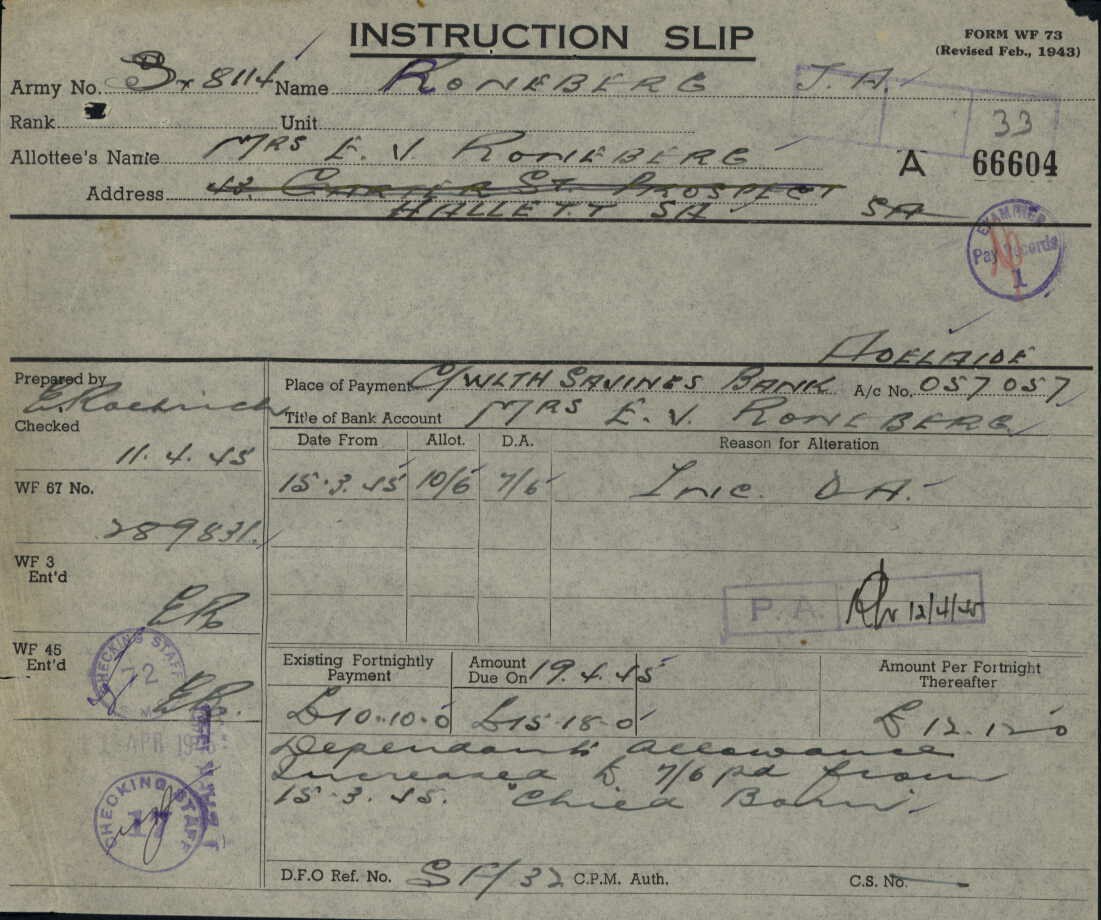 INSTRUCTION SLIP
FORM WF 73
(Revised Feb., 1943)
Army No. Sx 8114 Name RONEBERG J. A.
Rank Unit
33
Allottee's Name MRS E. V. RONEBERG
A 66604
Address 43, CARTER ST. PROSPECT SA
HALLETT SA
EXAMINER
Pay Records
1
ADELAIDE
Prepared by
Place of Payment C/WLTH SAVINGS BANK A/c No. 057057
Checked
Title of Bank Account MRS E. V. RONEBERG
11.4.45
Date From Allot. D.A. Reason for Alteration
15.3.45 10/6 7/6 Inc. D.A.
WF 67 No.
289831.
WF 3
Ent'd
ER
P.A. 12/4/45
WF 45
Ent'd
CHECKING STAFF
72
ER.
Existing Fortnightly Payment
Amount Due On 19.4.45
Amount Per Fortnight Thereafter
£10-10-0 £15-18-0 £12.12.0
APR 1945
Dependants allowance
Increased to 7/6 pd from
15.3.45. "Child Born"
CHECKING STAFF
17
D.F.O Ref. No. SA/32 C.P.M. Auth. C.S. No.